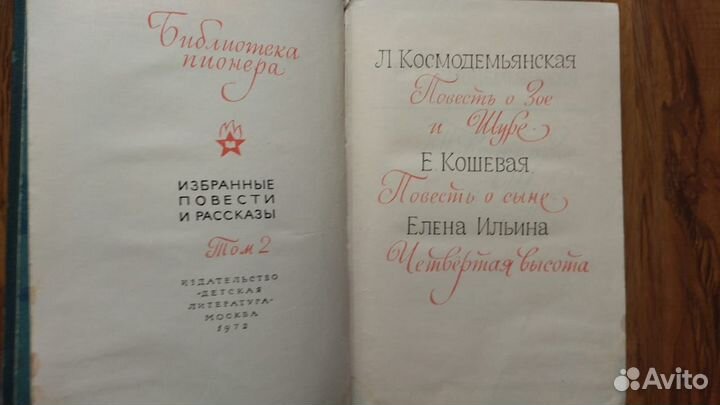 Библиотека
пионера
ИЗБРАННЫЕ
ПОВЕСТИ
И РАССКАЗЫ
Том 2
ИЗДАТЕЛЬСТВО
"ДЕТСКАЯ
ЛИТЕРАТУРА"
МОСКВА
1972
Л. КОСМОДЕМЬЯНСКАЯ
Повесть о Зое
и Шуре.
Е. КОШЕВАЯ.
Повесть о сыне.
ЕЛЕНА ИЛЬИНА
Четвёртая высота
Avito